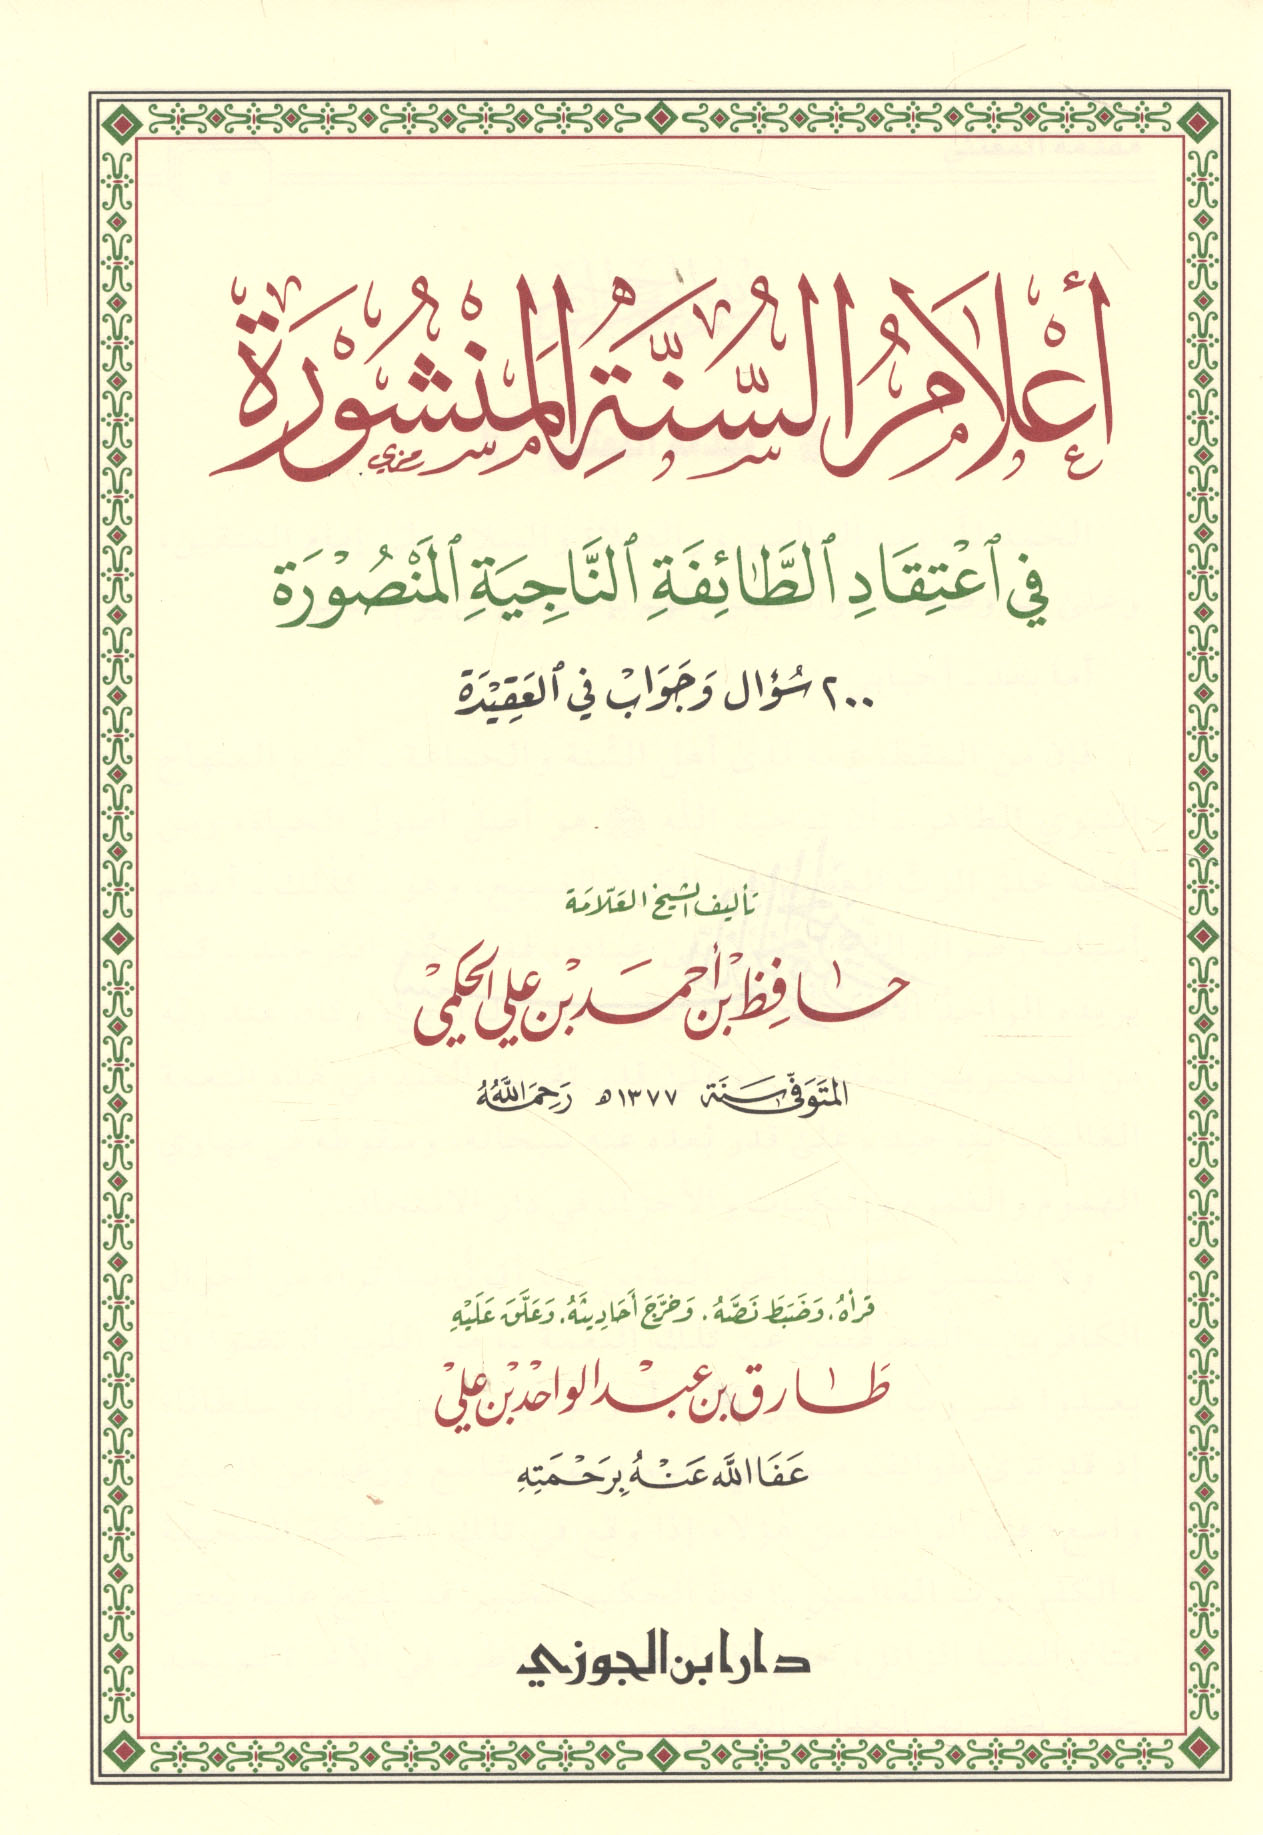 أَعْلَامُ السُّنَّةِ المَنْشُورَة
في اعْتِقَادِ الطَّائِفَةِ النَّاجِيَةِ المَنْصُورَة
٢٠٠ سُؤَال وَجَوَابْ في العَقِيْدَة
تأليف الشيخ العَلّامَة
حَافِظ بْن أحمد بْن علي الحكمي
المتَوَفّى سَنَة ١٣٧٧هـ رَحِمَهُ اللَّهُ
قرأهُ، وَضَبَطَ نَصَّهُ، وَخَرَّجَ أَحَادِيثَهُ، وَعَلَّقَ عَلَيْهِ
طَارق بن عبْد الواحدْ بْن عليْ
عَفَا اللَّه عَنْهُ بِرَحْمَتِهِ
دار ابن الجوزي